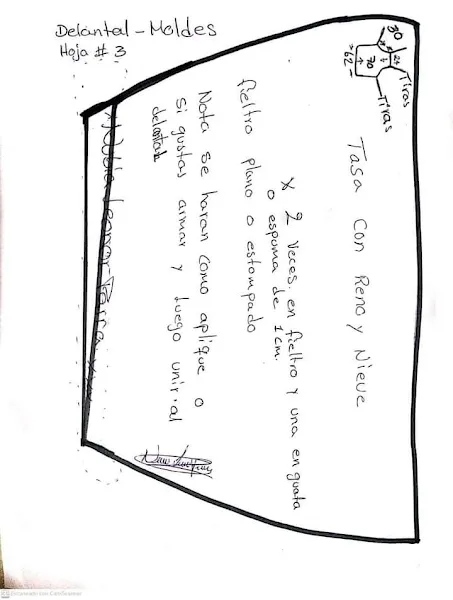 Delantal - Moldes
Hoja # 3
30
24
70
62
Tiras
Tiras
Tasa Con Reno y Nieve
x 2 Veces. en fieltro y una en guata
o espuma de 1cm.
fieltro plano o estampado
Nota se haran como aplique o
Si gustas armar y luego unir al
delantal